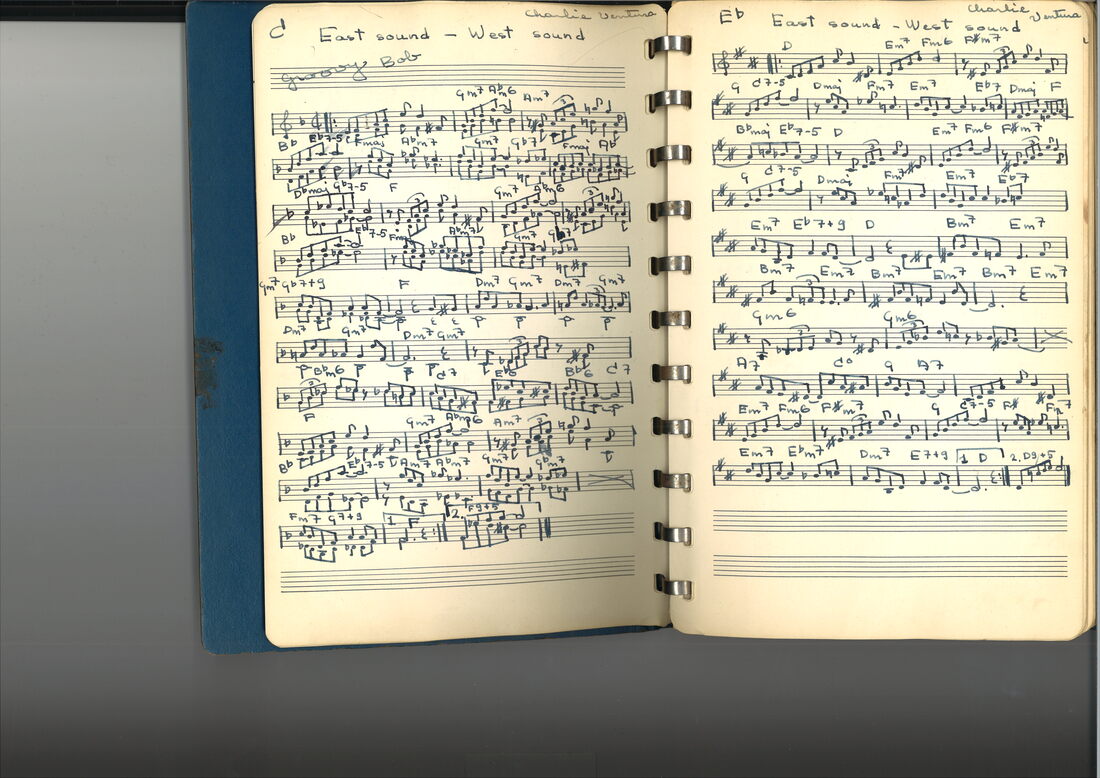 Charlie Ventura
C East sound - West sound
Groovy Bob
Gm7 Abm6 Am7
Bb Eb7-5 Fmaj Abm7 Gm7 Gb7 Fmaj Ab
Dbmaj Gb7-5 F Gm7 Abm6
Bb Eb7-5 Fmaj Abm7 Gm7
Gm7 Gb7+9 F Dm7 Gm7 Dm7 Gm7
Dm7 Gm7 Dm7 Gm7
Bbm6 C7 Eb6 Bb6 C7
F Gm7 Abm6 Am7
Bb Eb7-5 Am7 Abm7 Gm7 Gbm7
Fm7 G7+9 1 F 2. F9+5
Charlie Ventura
Eb East sound - West sound
D Em7 Fm6 F#m7
G C7-5 Dmaj Fm7 Em7 Eb7 Dmaj F
Bbmaj Eb7-5 D Em7 Fm6 F#m7
G C7-5 Dmaj Fm7 Em7 Eb7
Em7 Eb7+9 D Bm7 Em7
Bm7 Em7 Bm7 Em7 Bm7 Em7
Gm6 Gm6
A7 C° G A7
Em7 Fm6 F#m7 G C7-5 F# Fm7
Em7 Ebm7 Dm7 E7+9 1 D 2. D9+5